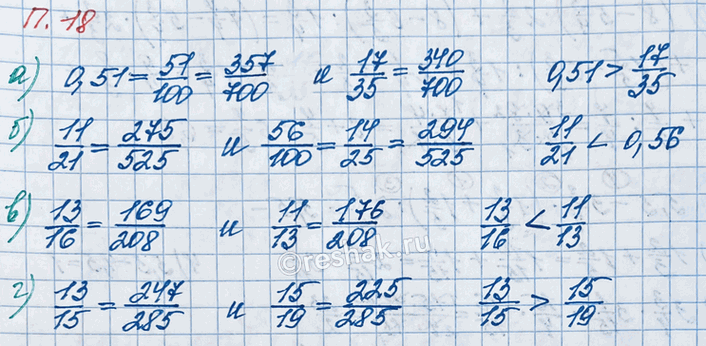 П. 18
а) 0,51 = 51/100 = 357/700 и 17/35 = 340/700 0,51 > 17/35
б) 11/21 = 275/525 и 56/100 = 14/25 = 294/525 11/21 < 0,56
в) 13/16 = 169/208 и 11/13 = 176/208 13/16 < 11/13
©reshak.ru
г) 13/15 = 247/285 и 15/19 = 225/285 13/15 > 15/19